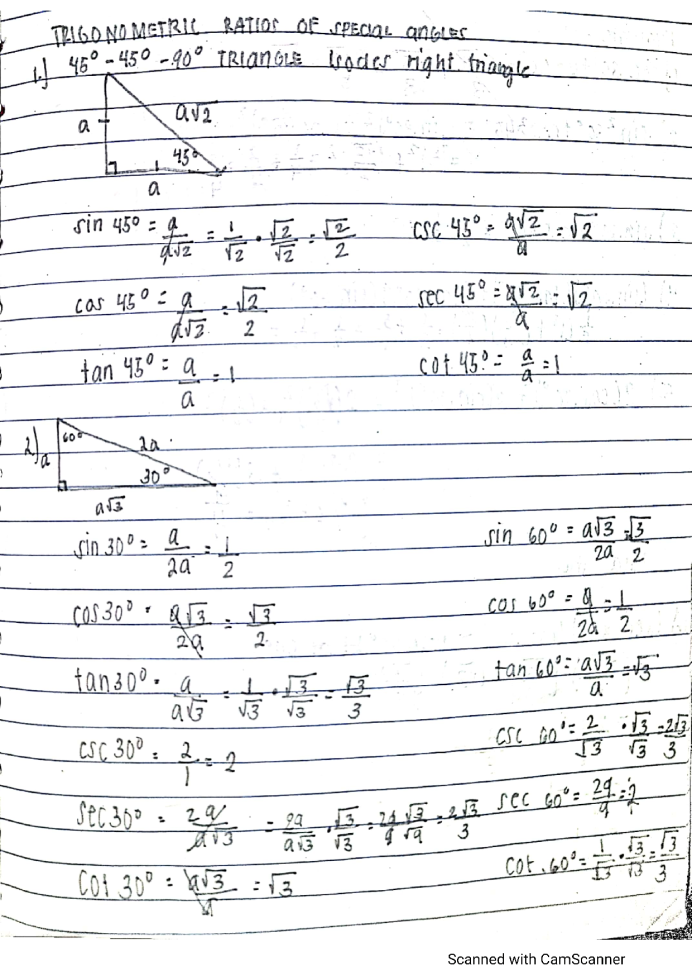 TRIGONOMETRIC RATIOS OF SPECIAL ANGLES
1.) 45° - 45° - 90° TRIANGLE Isocles right triangle
a√2
a
45°
a
sin 45° = a/a√2 = 1/√2 • √2/√2 = √2/2 csc 45° = a√2/a = √2
cos 45° = a/a√2 = √2/2 sec 45° = a√2/a = √2
tan 45° = a/a = 1 cot 45° = a/a = 1
2.) a 60° 2a
30°
a√3
sin 30° = a/2a = 1/2 sin 60° = a√3/2a = √3/2
cos 30° = a√3/2a = √3/2 cos 60° = a/2a = 1/2
tan 30° = a/a√3 = 1/√3 • √3/√3 = √3/3 tan 60° = a√3/a = √3
csc 30° = 2/1 = 2 csc 60° = 2/√3 • √3/√3 = 2√3/3
sec 30° = 2a/a√3 = 2a/a√3 • √3/√3 = 2a√3/a√9 = 2√3/3 sec 60° = 2a/a = 2
cot 30° = a√3/a = √3 cot 60° = 1/√3 • √3/√3 = √3/3
Scanned with CamScanner